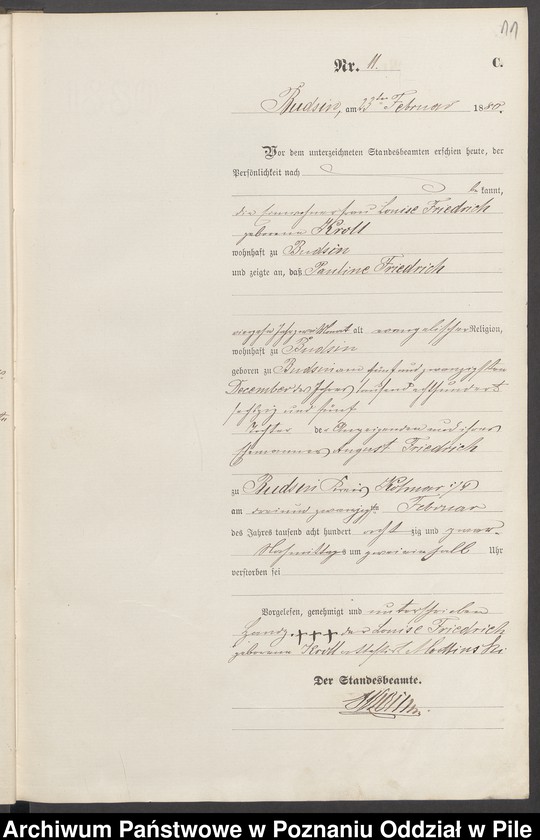 11
Nr. 11. C.
Budsin, am 23ten Februar 1880.
Vor dem unterzeichneten Standesbeamten erschien heute, der
Persönlichkeit nach
bekannt,
die Einwohnerfrau Louise Friedrich
geborene Kroll
wohnhaft zu Budsin
und zeigte an, daß Pauline Friedrich
vierzehn Jahr zwei Monat alt evangelischer Religion,
wohnhaft zu Budsin
geboren zu Budsin am fünf und zwanzigsten
December des Jahres tausend achthundert
sechzig und fünf
Tochter der Anzeigenden und ihres
Ehemannes August Friedrich
zu Budsin Kreis Kolmar i/P
am drei und zwanzigsten Februar
des Jahres tausend acht hundert acht zig und zwar
Nachmittags um zwei ein halb Uhr
verstorben sei
Vorgelesen, genehmigt und unterschrieben
Handz. +++ der Louise Friedrich
geborene Kroll attestirt
Der Standesbeamte.
Archiwum Państwowe w Poznaniu Oddział w Pile